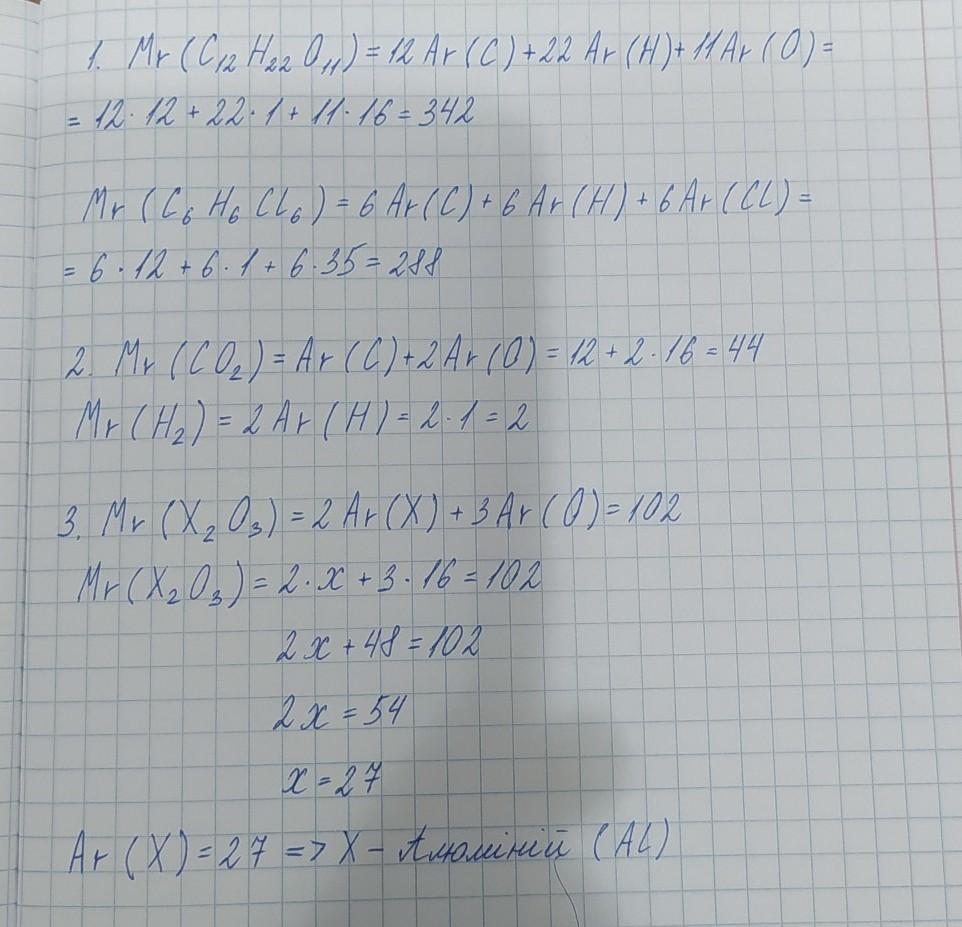 1. Mr (C₁₂ H₂₂ O₁₁) = 12 Ar (C) + 22 Ar (H) + 11 Ar (O) =
= 12 · 12 + 22 · 1 + 11 · 16 = 342
Mr (C₆ H₆ Cl₆) = 6 Ar (C) + 6 Ar (H) + 6 Ar (Cl) =
= 6 · 12 + 6 · 1 + 6 · 35 = 288
2. Mr (CO₂) = Ar (C) + 2 Ar (O) = 12 + 2 · 16 = 44
Mr (H₂) = 2 Ar (H) = 2 · 1 = 2
3. Mr (X₂ O₃) = 2 Ar (X) + 3 Ar (O) = 102
Mr (X₂ O₃) = 2 · x + 3 · 16 = 102
2x + 48 = 102
2x = 54
x = 27
Ar (X) = 27 => X – Алюміній (Al)